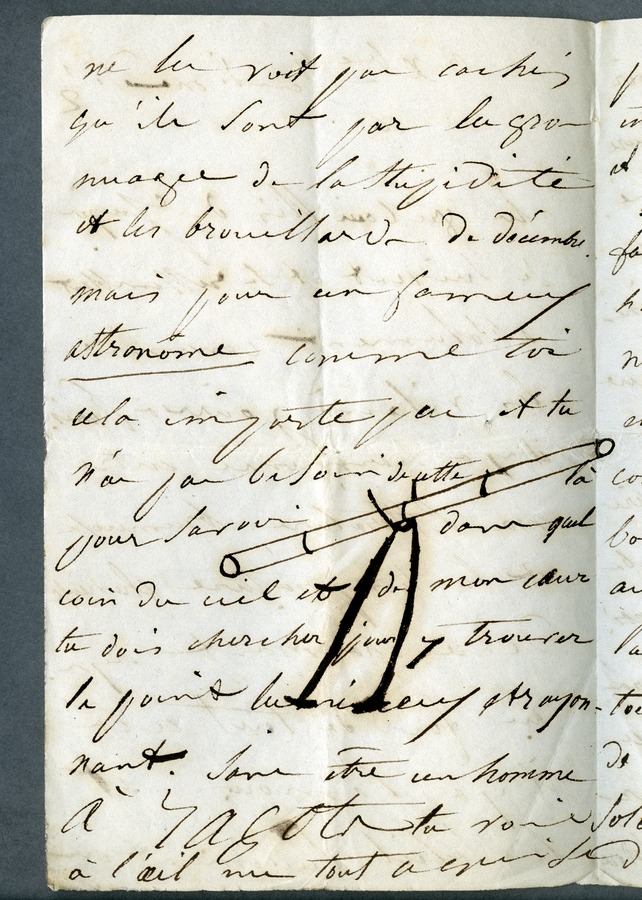 ne les voit pas cachés
qu'ils sont par les gros
nuages de la stupidité
et les brouillards de décembre.
mais pour un fameux
astronome comme toi
cela importe peu et tu
n'as pas besoin de cette là
pour savoir dans quel
coin du ciel et de mon cœur
tu dois chercher pour y trouver
le point lumineux et rayon-
nant. Sans être un homme
à tu vois
à l'œil nu tout ce qui se